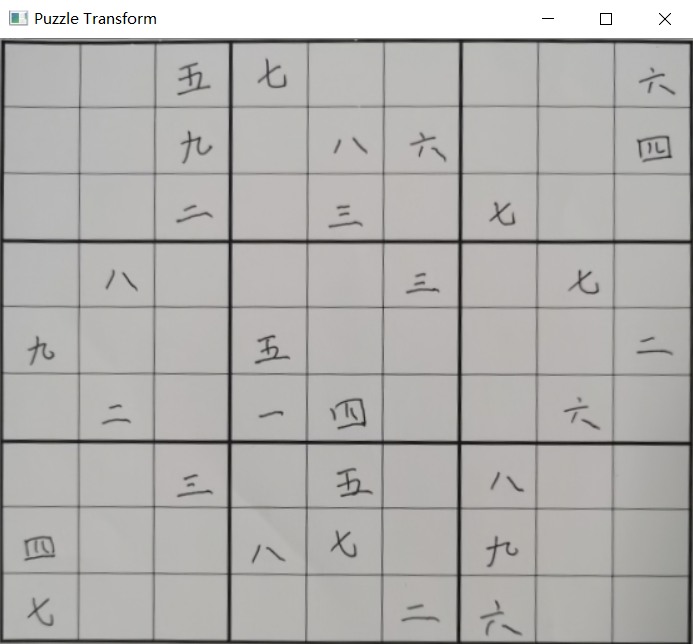 Puzzle Transform
五 七 六
九 八 六 四
二 三 七
八 三 七
九 五 二
二 一 四 六
三 五 八
四 八 七 九
七 二 六